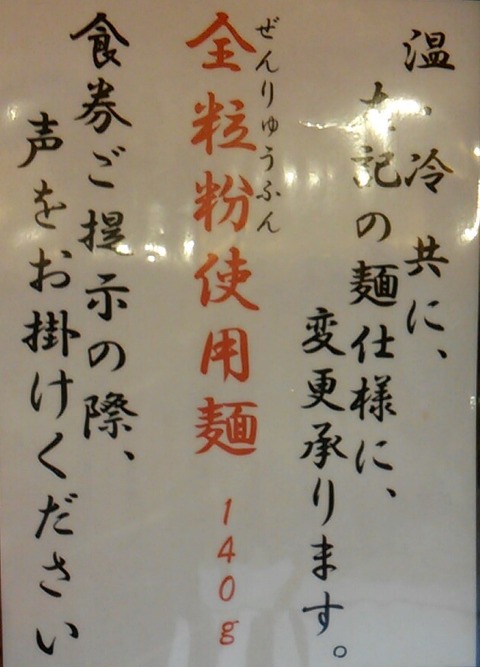 温、冷 共に、
左記の麺仕様に、
変更承ります。
ぜんりゅうふん
全粒粉使用麺 140g
食券ご提示の際、
声をお掛けください